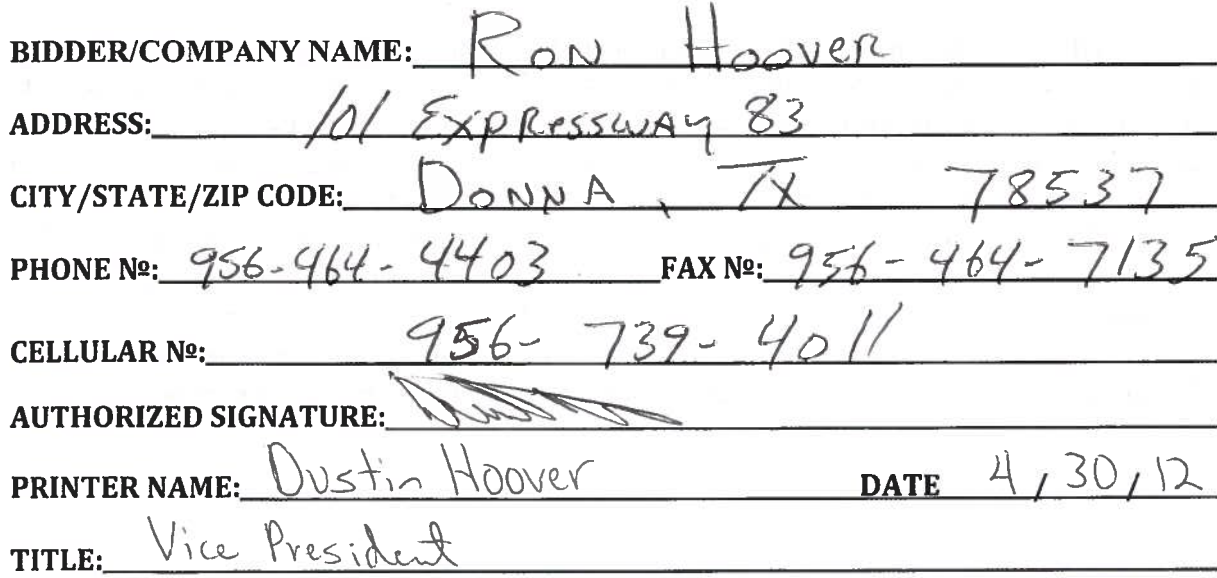 BIDDER/COMPANY NAME: Ron Hoover
ADDRESS: 101 Expressway 83
CITY/STATE/ZIP CODE: Donna, TX 78537
PHONE Nº: 956-464-4403 FAX Nº: 956-464-7135
CELLULAR Nº: 956-739-4011
AUTHORIZED SIGNATURE:
PRINTER NAME: Dustin Hoover DATE 4/30/12
TITLE: Vice President